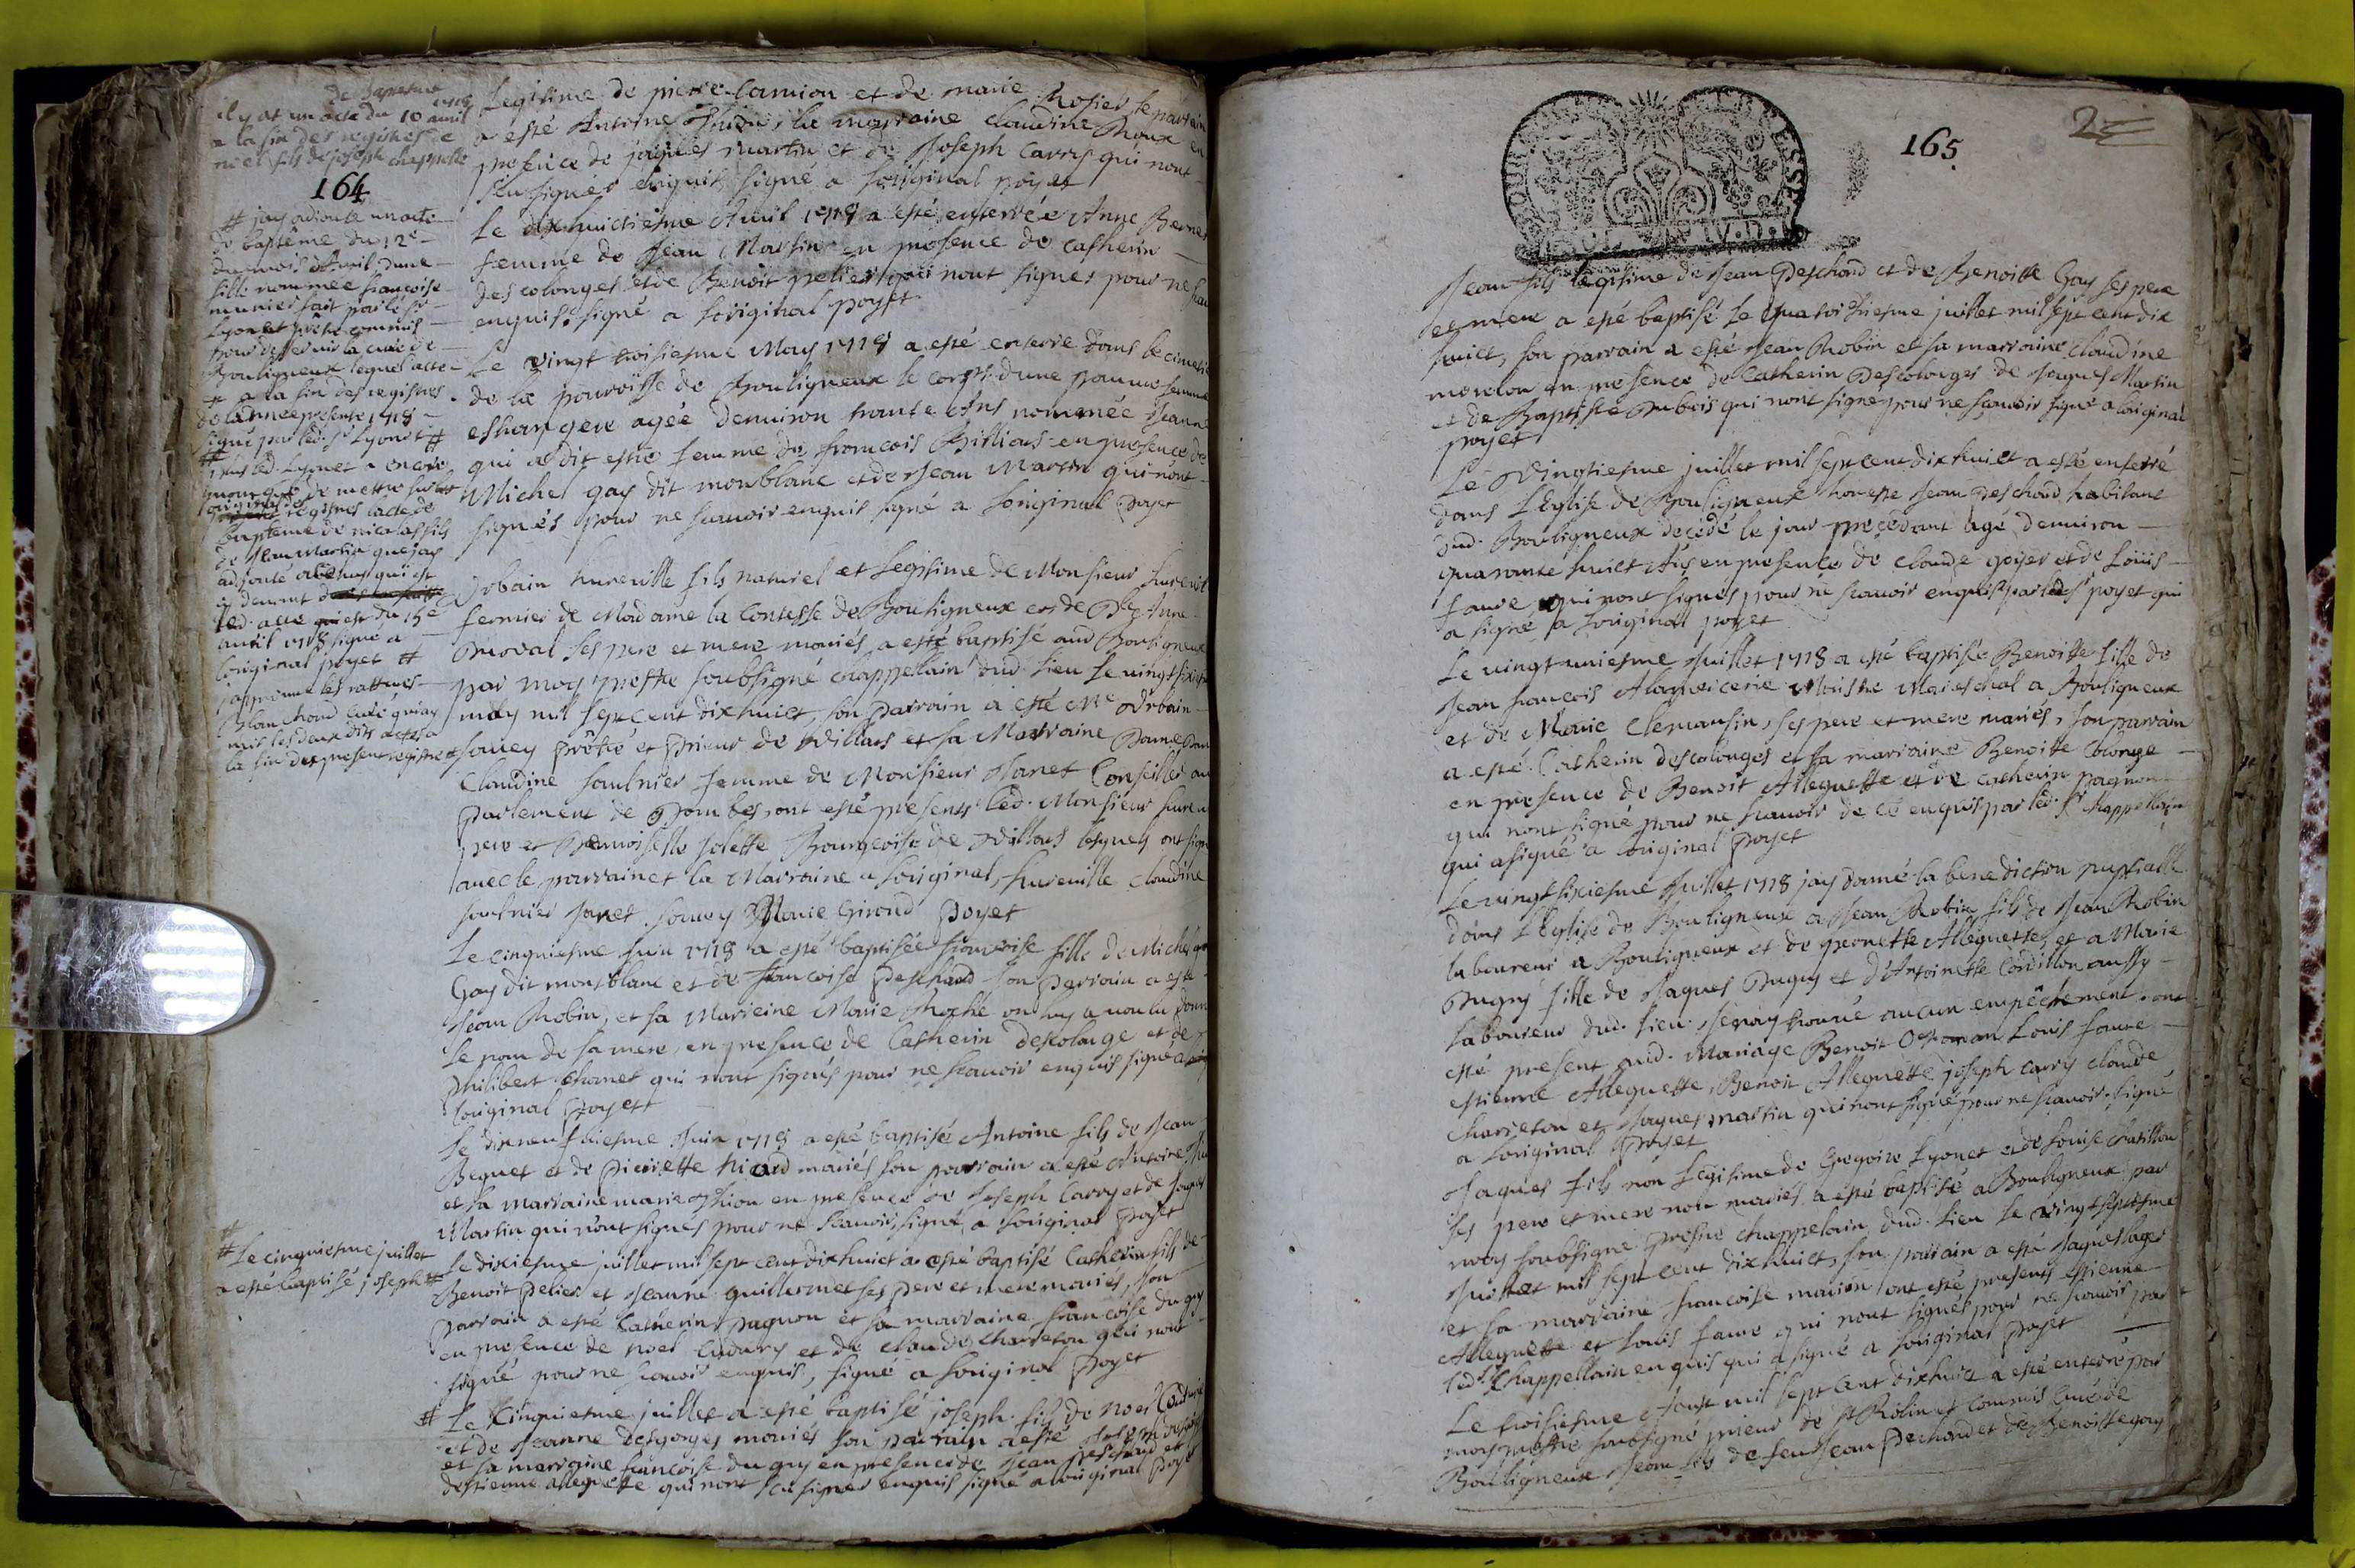 de Baptesme
il y at un acte du 10 avril 1718
a la fin des registres de
noel fils de joseph chappelle
164
# jay adjouté un acte
de baptême du 12e
du mois d'Avril d'une
fille nommée francoise
munier fait par le sr
Lyonet prêtre commis
pour desservir la cure de
Bouligneux lequel acte
a la fin des registres
de lannee presente 1718
signé par led. sr Lyonet #
led. Lyonet a encore
de mettre sur les
registres lacte de
baptême de nicolas fils
de Jean Martin que jay
adjouté qui est
led. acte qui est du 15e
avril 1718 signé a
loriginal poyet #
japprouve les ratures
Blanchond curé qui ay
mis les deux dits actes a
la fin des present registre
# Le cinquiesme juillet
a esté baptisé joseph #
Legitime de pierre Camion et de marie Rosier le parrain
a esté Antoine la marraine claudine Roux en
presence de jaques Martin et de Joseph Carry qui nont
sceu signer enquis signé a loriginal poyet
Le dixhuictiesme Avril 1718 a esté enterrée Anne Bernet
femme de Jean Martin en presence de Catherin
descolonges et de Benoit pelier qui nont signés pour ne
enquis signé a loriginal poyet
Le vingt troisiesme May 1718 a esté enterré dans le cimetie
de la parroisse de Bouligneux le corps dune pauvre femme
estrangere agée denuiron trante Ans nommée Jeanne
qui a dit estre femme de francois Billiard en presence de
Michel gay dit monblanc et de Jean Martin qui nont
signés pour ne scauoir enquis signé a loriginal poyet
Urbain hureville fils naturel et Legitime de Monsieur hurevil
fermier de Madame la Contesse de Bouligneux et de Dlle Anne
Duroval ses pere et mere mariés a esté baptisé aud Bouligneux
par moy prestre soubsigné chappellain dud. lieu le vingt sixies
may mil sept cent dixhuict, son parrain a esté Mre Urbain
souey prêtre et prieur de Villars et sa Marraine Dame
Claudine saulnier femme de Monsieur Janet Conseiller au
parlement de Dombes, ont esté presents led. Monsieur hurevi
pere et Demoiselle Bourgeoise de Villars lesquels ont sign
avec le parrain et la Marraine a loriginal, hureville claudine
saulnier Janet souey Marie Girond poyet
Le cinquiesme Juin 1718 a esté baptisée francoise fille de Michel
Gay dit montblanc et de francoise Peschard son parrain a esté
Jean Robin, et sa Marieine Marie Roche on luy a voulu donn
le nom de sa mere, en presence de Catherin descolonge et de
philibert chanet qui nont signés pour ne scauoir enquis signé a
loriginal poyet
Le dixneufuiesme Juin 1718 a esté baptisé Antoine fils de Jean
Beguet et de pierrette hicard mariés son parrain a esté Antoine
et sa marraine marie en presence de Joseph Carry et de jaques
Martin qui n'ont signés pour ne scauoir, signé a loriginal poyet
Le dixiesme juillet mil sept cent dixhuict a esté baptisé Catherin fils de
Benoit pelier et Jeanne guillermet ses pere et mere mariés, son
parrain a esté Catherin pagnon et sa marraine francoise dugny
en presence de noel Cudury et de claude charreton qui nont
signé pour ne scauoir enquis, signé a loriginal poyet
# Le Cinquiesme juillet a esté baptisé joseph fils de noel
et de Jeanne desgorges mariés son parrain a esté Joseph
et sa marraine francoise dugny en presence de Jean peschard et
destienne alleguette qui nont sceu signer enquis signé a loriginal poyet
165
2
Jean fils legitime de Jean Peschard et de Benoitte Gay ses pere
et mere a esté baptisé le quatorziesme juillet mil sept cent dix
huict, son parrain a esté Jean Robin et sa marraine claudine
en presence de Catherin Descolonges de Jaques Martin
et de Baptiste Dubois qui nont signé pour ne scauoir signé a loriginal
poyet
Le Vingtiesme juillet mil sept cent dixhuict a esté enterré
dans L'Eglise de Bouligneux honeste Jean peschard habitant
dud. Bouligneux decedé le jour precedant agé denuiron
quarante huict Ans en presence de claude et de Louis
faure qui nont signés pour ne scauoir enquis par led. sr poyet qui
a signé a loriginal poyet
Le vingt uniesme Juillet 1718 a esté baptisée Benoitte fille de
Jean francois Maistre Mareschal a Bouligneux
et de Marie Clemansin, ses pere et mere mariés, son parrain
a esté Catherin descolonges et sa marraine Benoitte Colonge
en presence de Benoit Alleguette et de Catherin pagnon
qui nont signé pour ne scauoir de ce enquis par led. sr chappellain
qui a signé a loriginal poyet
Le vingt sixiesme Juillet 1718 jay donné la benediction nuptialle
dans l'Eglise de Bouligneux a Jean Robin fils de Jean Robin
laboureur a Bouligneux et de pernette Alleguette, et a Marie
Dugny fille de Jaques Dugny et d'Antoinette Cordillon aussy
laboureur dud. lieu, je nay trouué aucun empêchement, ont
esté present aud. Mariage Benoit Louis faure
estienne Alleguette, Benoit Alleguette joseph carry claude
charreton et Jaques martin qui nont signé pour ne scauoir. signé
a loriginal poyet
Jaques fils non Legitime de Gregoire Lyonet et de Louise chatillon
ses pere et mere non mariés a esté baptisé a Bouligneux par
moy soubsigné prestre chappelain dud. lieu le vingt septiesme
Juillet mil sept cent dixhuict, son parrain a esté Jaques
et sa marraine francoise marion ont esté presents estienne
Alleguette et Louis faure qui nont signés pour ne scauoir par
led. sr Chappellain enquis qui a signé a loriginal poyet
Le troisiesme Aoust mil sept cent dixhuict a esté enterré par
moy prestre soubsigné prieur de St Robin et commis curé de
Bouligneux Jean fils de feu Jean Pechard et de Benoitte gay